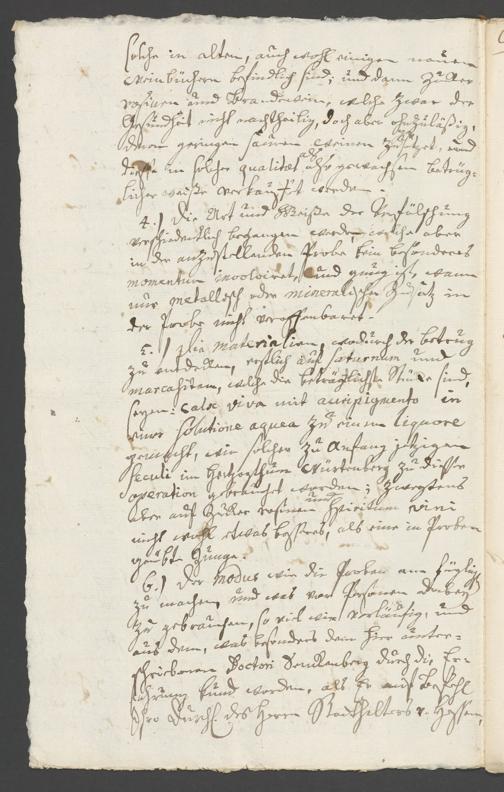 solche in alten, auch wohl einigen neuen
Weinbüchern befindlich sind; und dann Zucker
rosinen und brandwein, welche zwar der
Gesundheit nicht nachtheilig, doch aber ohnzuläßig,
denen geringen sauren weinen zusetzet, und
diese in solcher qualitæt als ob gewachsen betrüg-
licher weiße verkauft werden.
4.) Die Art und Weiße der Verfälschung
verschiedentlich begangen werde, welche aber
in der anzustellenden Probe kein besonderes
momentum involviret, und genug ist, wenn
nur metallisch oder mineralischer Zusatz in
der Probe sich veroffenbaret.
5.) Die materialien, wodurch der betrug
zu entdecken, erstlich auf Saturnum und
marcasitam, welche die beträchtlichste Stücke sind,
seyen: Calx viva mit auripigmento in
einer solutione aquea zu einem liquore
gemacht, wie solcher zu Anfang jetzigen
Seculi im Hertzogthum Würtenberg zu dieser
operation gebraucht worden; zweytens
aber auf Zucker rosinen und Spiritum vini
nicht wohl etwas bessers, als eine in Proben
geübte Zunge.
6.) Der modus wie die Proben am füglichsten
zu machen, und was vor Personen darbey
zu gebrauchen, so viel wie vorläufig, und
aus dem, was besonders dem hier unter-
schriebenen Doctori Senckenberg durch die Er-
fahrung kund worden, als Er auf Befehl
Ihro Durchl. des Herrn Statthalters v. Hessen,